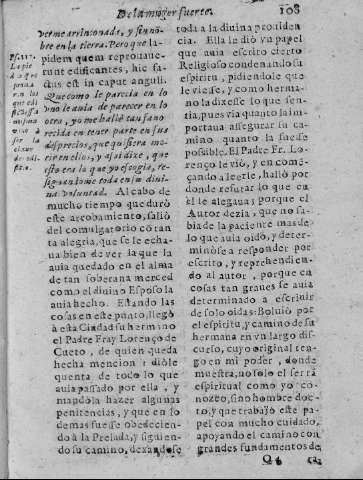 De la muger fuerte. 108
uerme arrinconada, y sin nõ-
bre en la tierra. Pero que la-
pidem quem reprouaue-
runt edificantes, hic fa-
ctus est in caput anguli.
Que como le parecia en lo
vno le auia de parecer en lo
otro, y o me hallò tan fauo
recida en tener parte en sus
desprecios, que quisiera mo-
rir en ellos, y asi dixe, que
esto era lo que yo escogia, re-
signandome toda en su diui-
na voluntad. Al cabo de
mucho tiempo que durò
este arrobamiento, salió
del comulgatorio cõ tan
ta alegria, que se le echa-
ua bien de ver la que la
auia quedado en el alma
de tan soberana merced
como el diuino Esposo la
auia hecho. Estando las
cosas en este punto, llegò
à esta Ciudad su hermano
el Padre Fray Lorenço de
Cueto, de quien queda
hecha mencion, diòle
quenta de todo lo que
auia passado por ella, y
mandòla hazer algunas
penitencias, y que en lo
demas fuesse obedecien-
do à la Prelada, y siguien-
do su camino, dexandose
Ps. 117.
La pie
dra que
en los
que edi
ficaua
misma
vino à
ser la
toda a la diuina prouiden
cia. Ella le diò vn papel
que auia escrito cierto
Religioso condenando su
espiritu, pidiendole que
le viesse, y como herma-
no la dixesse lo que sen-
tia, pues via quanto la im-
portaua assegurar su ca-
mino quanto la fuesse
possible. El Padre Fr. Lo-
renço le viò, y en comen-
çando a leerle, hallò por
donde refutar lo que en
èl le alegaua; porque el
Autor dezia, que no sa-
bia de la paciente mas de
lo que auia oìdo, y deter-
minòse a responder por
escrito, y reprehendien-
do al autor, porque en
cosas tan graues se auia
determinado a escriuir
de solo oidas: Boluiò por
el espiritu, y camino de su
hermana en vn largo dis-
curso, cuyo original ten-
go en mi poder, donde
muestra, no solo el ser tã
espiritual como yo co-
nozco, sino hombre doc-
to, y que trabajò este pa-
pel con mucho cuidado,
apoyando el camino con
grandes fundamentos de